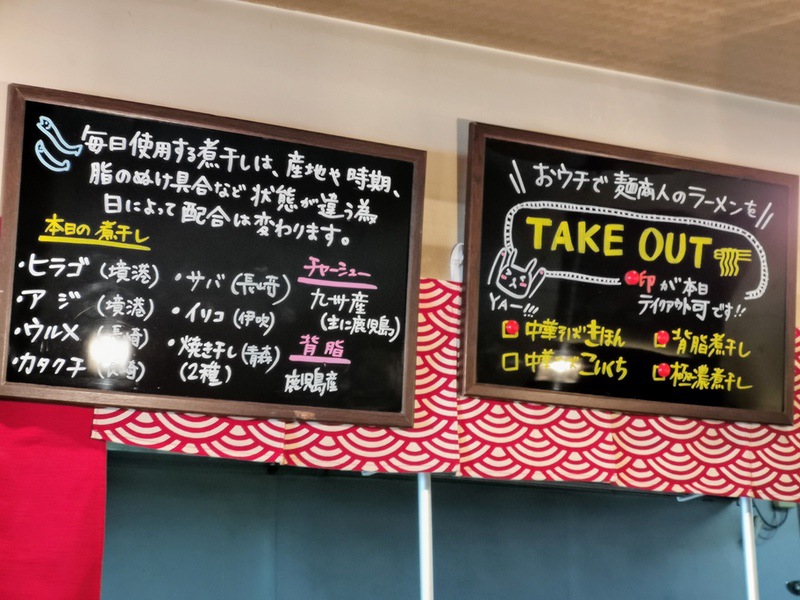 毎日使用する煮干しは、産地や時期、
脂のぬけ具合など状態が違う為
日によって配合は変わります。
本日の煮干し
・ヒラゴ(境港)
・アジ(境港)
・ウルメ(長崎)
・カタクチ(長崎)
・サバ(長崎)
・イリコ(伊吹)
・焼き干し(青森)
(2種)
チャーシュー
九州産
(主に鹿児島)
背脂
鹿児島産
おウチで麺商人のラーメンを
TAKE OUT
YA-!!!
印が本日
テイクアウト可です!!
中華そばきほん
中華そばこいくち
背脂煮干し
極濃煮干し